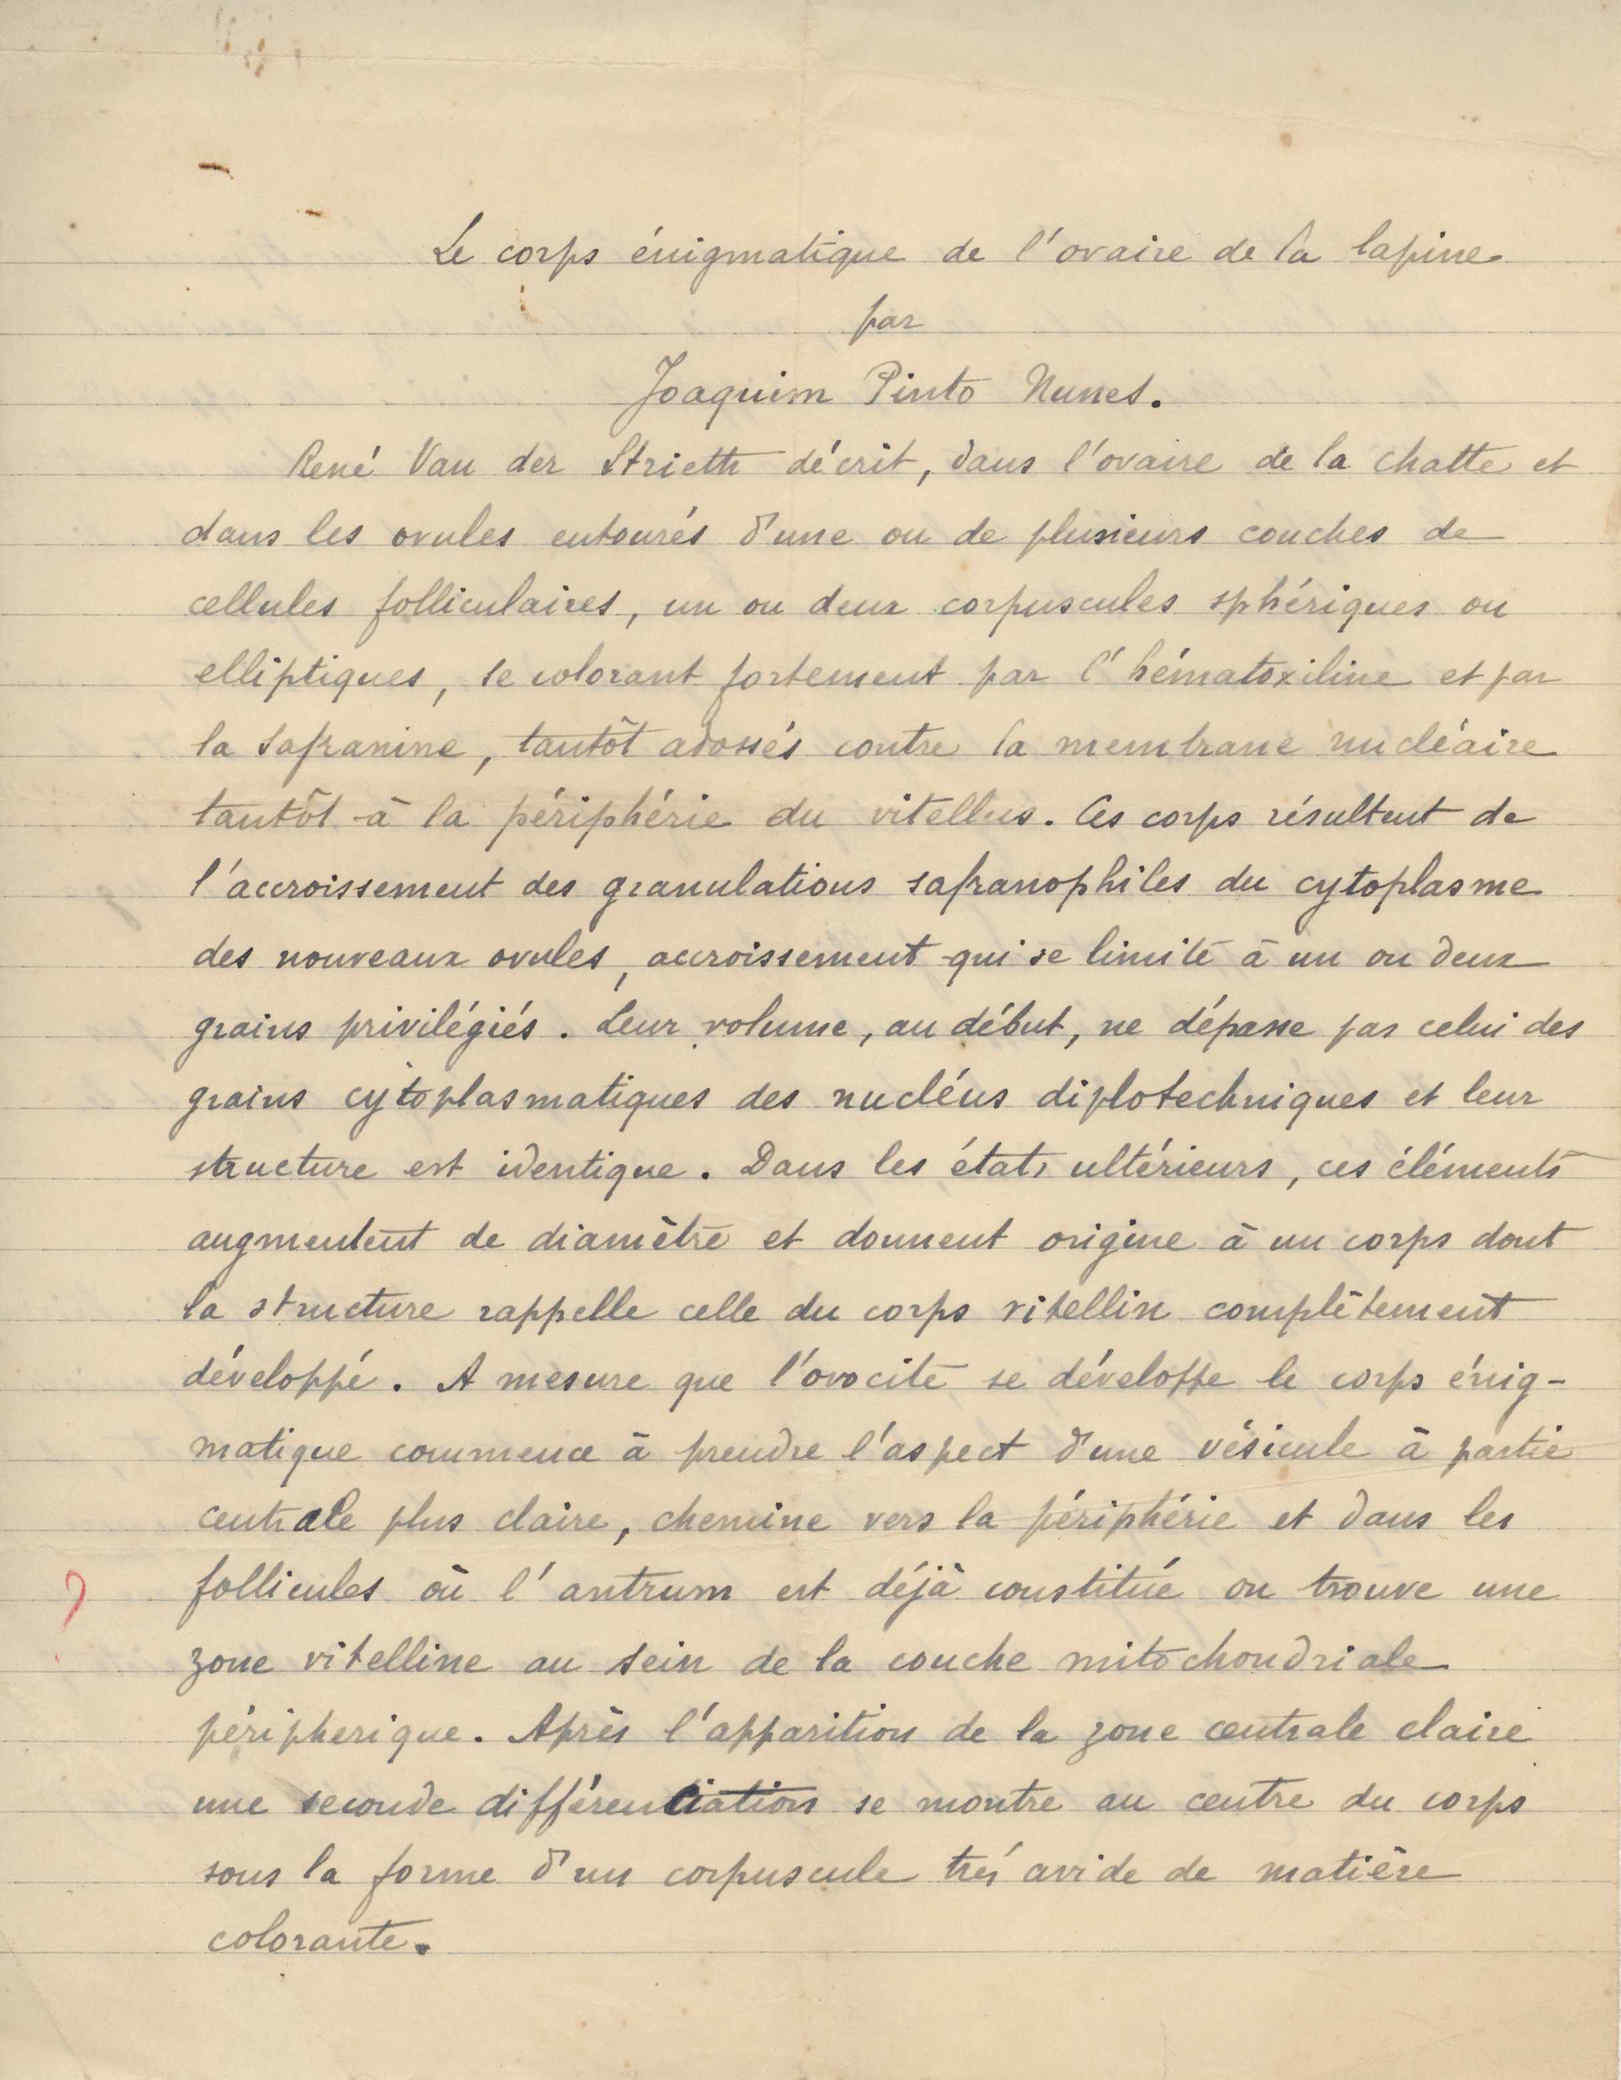 Le corps énigmatique de l'ovaire de la lapine
par
Joaquim Pinto Nunes.
René Van der Stricth décrit, dans l'ovaire de la chatte et
dans les ovules entourés d'une ou de plusieurs couches de
cellules folliculaires, un ou deux corpuscules sphériques ou
elliptiques, se colorant fortement par l'hématoxiline et par
la safranine, tantôt adossés contre la membrane nucléaire
tantôt à la périphérie du vitellus. Ces corps résultent de
l'accroissement des granulations safranophiles du cytoplasme
des nouveaux ovules, accroissement qui se limite à un ou deux
grains privilégiés. Leur volume, au début, ne dépasse pas celui des
grains cytoplasmatiques des nucléus diplotechniques et leur
structure est identique. Dans les états ultérieurs, ces éléments
augmentent de diamètre et donnent origine à un corps dont
la structure rappelle celle du corps vitellin complètement
développé. A mesure que l'ovocite se développe le corps énig-
matique commence à prendre l'aspect d'une vésicule à partie
centrale plus claire, chemine vers la périphérie et dans les
follicules où l'antrum est déjà constitué on trouve une
zone vitelline au sein de la couche mitochondriale
péripherique. Après l'apparition de la zone centrale claire
une seconde différenciation se montre au centre du corps
sous la forme d'un corpuscule trés avide de matière
colorante.